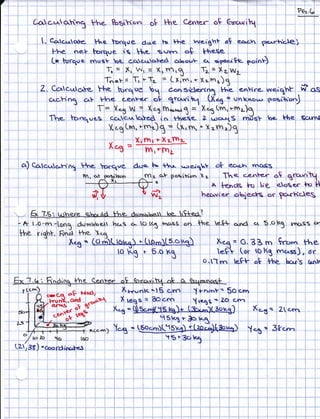 Pg. 6
Calculating the Position of the Center of Gravity
1. Calculate the torque due to the weight of each particle;
the net torque is the sum of these
(* torque must be calculated about a specific point)
T₁ = X₁ W₁ = X₁ m₁ g T₂ = X₂ W₂
Tnet = T₁ + T₂ = (X₁ m₁ + X₂ m₂) g
2. Calculate the torque by considering the entire weight W as
acting at the center of gravity (Xcg = unknown position)
T = Xcg W = Xcg g = Xcg (m₁ + m₂) g
The torques calculated in these 2 ways must be the same
Xcg (m₁ + m₂) g = (X₁ m₁ + X₂ m₂) g
Xcg = X₁ m₁ + X₂ m₂
m₁ + m₂
a) Calculating the torque due to the weight of each mass
m₁ at position X₁ m₂ at position X₂ The center of gravity
tends to lie closer to the
heavier objects or particles
Ex 7.5: Where should the dumbbell be lifted?
- A 1.0-m-long dumbbell has a 10 kg mass on the left and a 5.0 kg mass on
the right. Find the Xcg
Xcg = (0m)(10kg) + (1.0m)(5.0kg) Xcg = 0.33 m from the
10 kg + 5.0 kg left (or 10 kg mass), or
0.17m left of the bar's center
Ex 7.6: Finding the Center of Gravity of a Gymnast
y (cm) = cg of head, trunk, and arms Xtrunk = 15 cm Ytrunk = 50cm
center of gravity of legs X legs = 30 cm Ylegs = 20 cm
50 Xcg = (15cm)(45kg) + (30cm)(30kg) Xcg = 21cm
45kg + 30 kg
25 Ycg = (50cm)(45kg) + (20cm)(30kg) Ycg = 38cm
45 + 30 kg
x (cm)
(21, 38) = coordinates